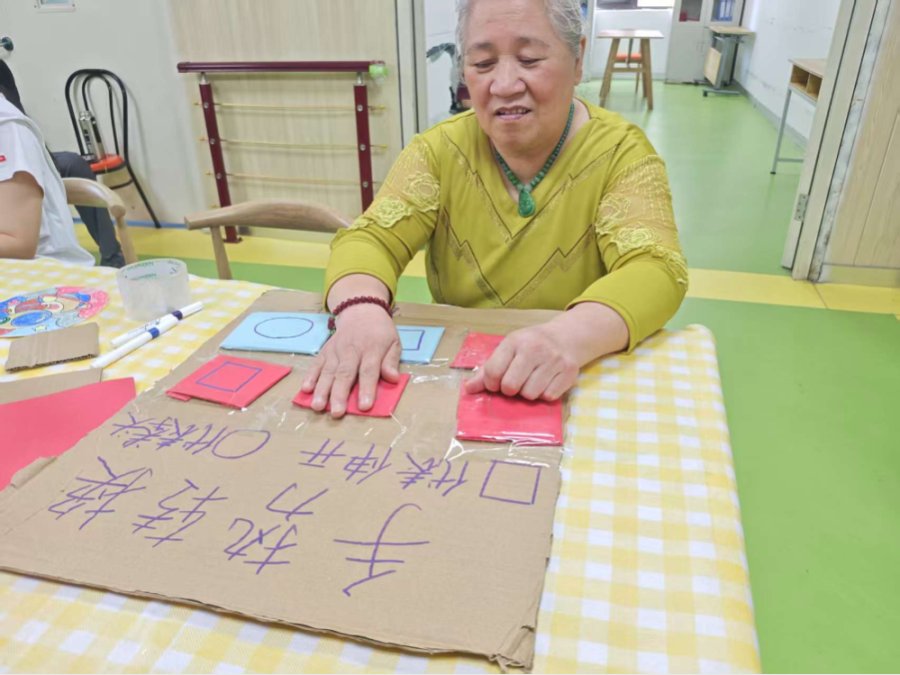 手势转换
□代表伸开 ○代表拳头